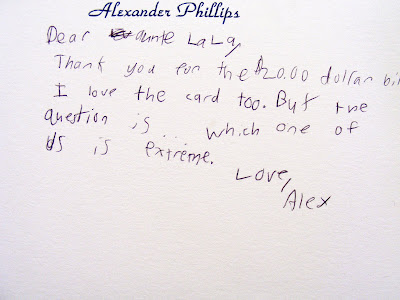 Alexander Phillips
Dear aunte LaLa,
Thank you for the $20.00 dollar bil
I love the card too. But the
question is... which one of
us is extreme.
Love,
Alex